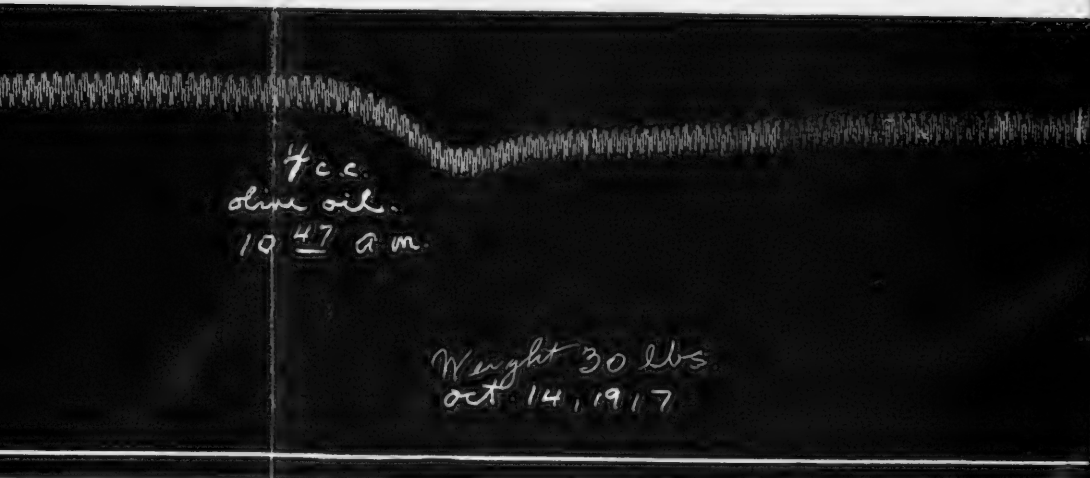 4 c.c.
olive oil.
10 47 a m.
Weight 30 lbs.
oct 14, 1917